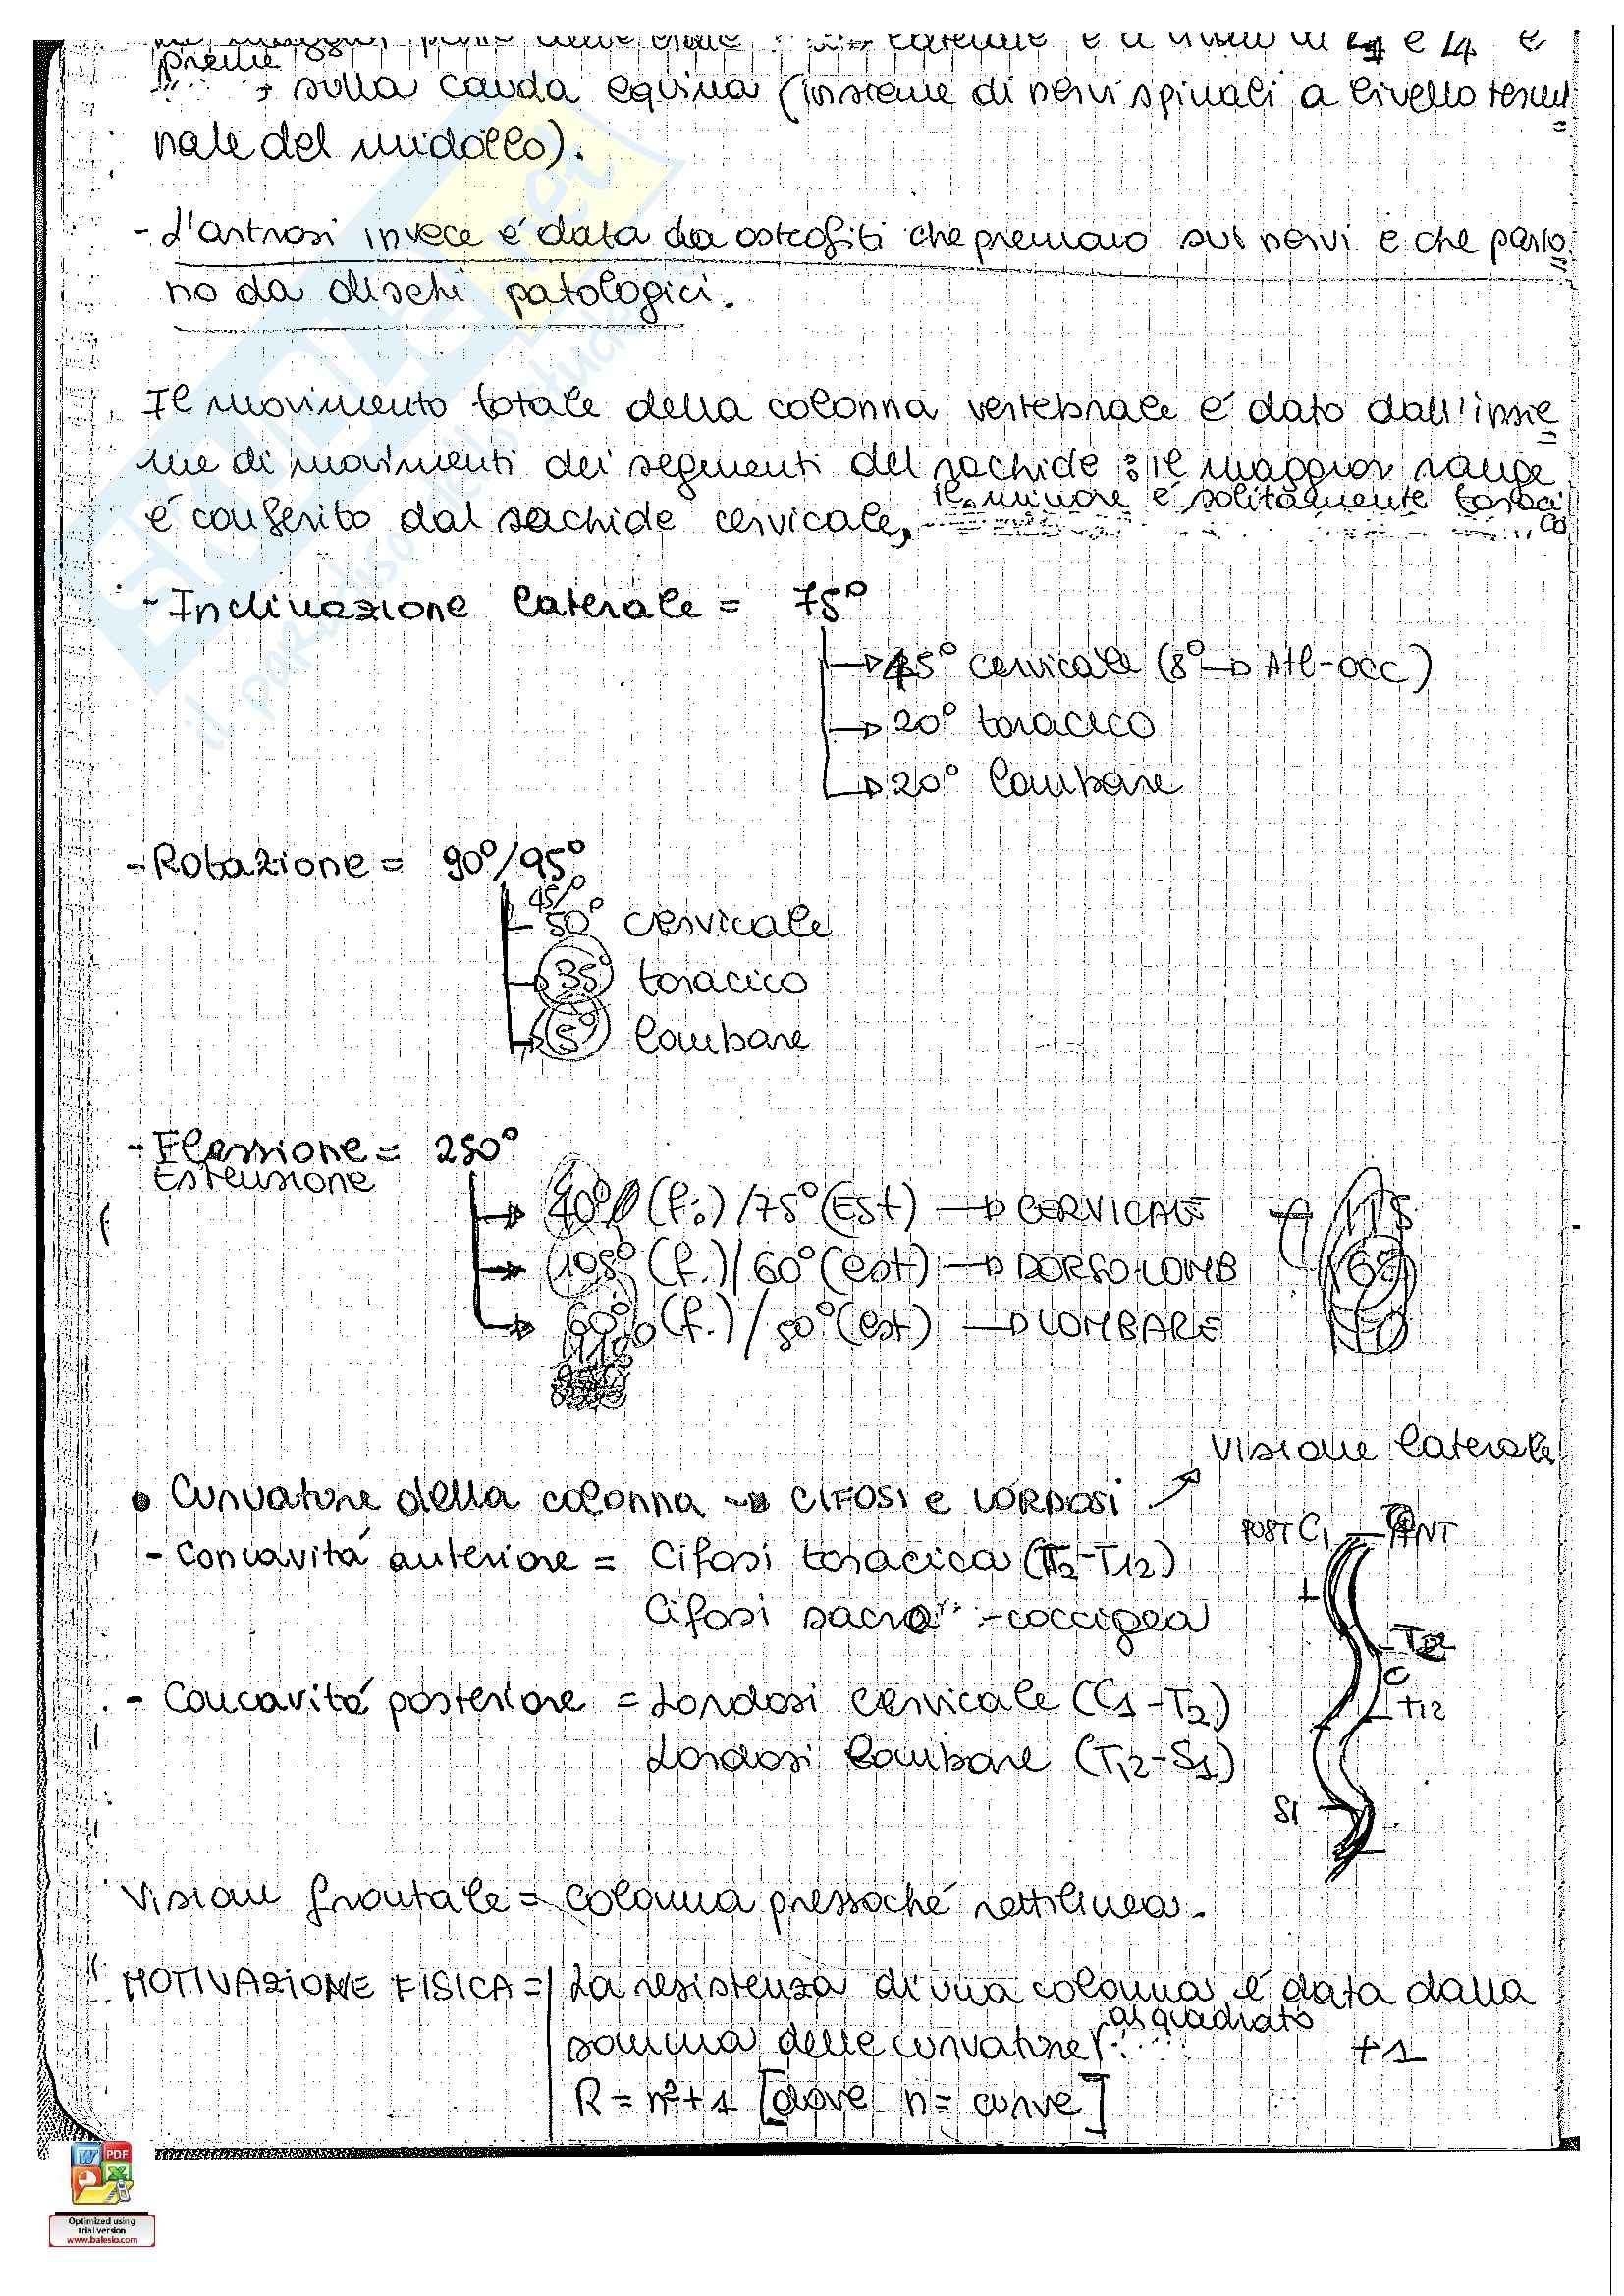 preme
sulla cauda equina (insieme di nervi spinali a livello termi
nale del midollo).
- L'artrosi invece é data da osteofiti che premono sui nervi e che parto
no da dischi patologici.
Il movimento totale della colonna vertebrale é dato dall'insie
me di movimenti dei segmenti del rachide: il maggior range
é conferito dal rachide cervicale, il minore é solitamente toraci
co
- Inclinazione laterale = 75°
45° cervicale (8° → Atl-occ)
→ 20° toracico
→ 20° lombare
- Rotazione = 90°/95°
45/°
50° cervicale
→ 35° toracico
→ 5° lombare
- Flessione = 250°
Estensione
→ 40° (f.) /75° (Est) → CERVICALE 115
→ 105° (f.) / 60° (est) → DORSO-LOMB 165
→ 60° (f.) / 50° (est) → LOMBARE 110
Visione laterale
• Curvature della colonna → CIFOSI e LORDOSI
POST C1 ANT
- Concavitá anteriore = Cifosi toracica (T2-T12)
Cifosi sacro-coccigea
L
T2
C
- Concavitá posteriore = Lordosi cervicale (C1-T2)
T12
Lordosi lombare (T12-S1)
S1
Vision frontale = colonna pressoché rettilinea.
MOTIVAZIONE FISICA = La resistenza di una colonna é data dalla
somma delle curvature al quadrato +1
R = n²+1 [dove n = curve]
Optimized using
trial version
www.balesio.com